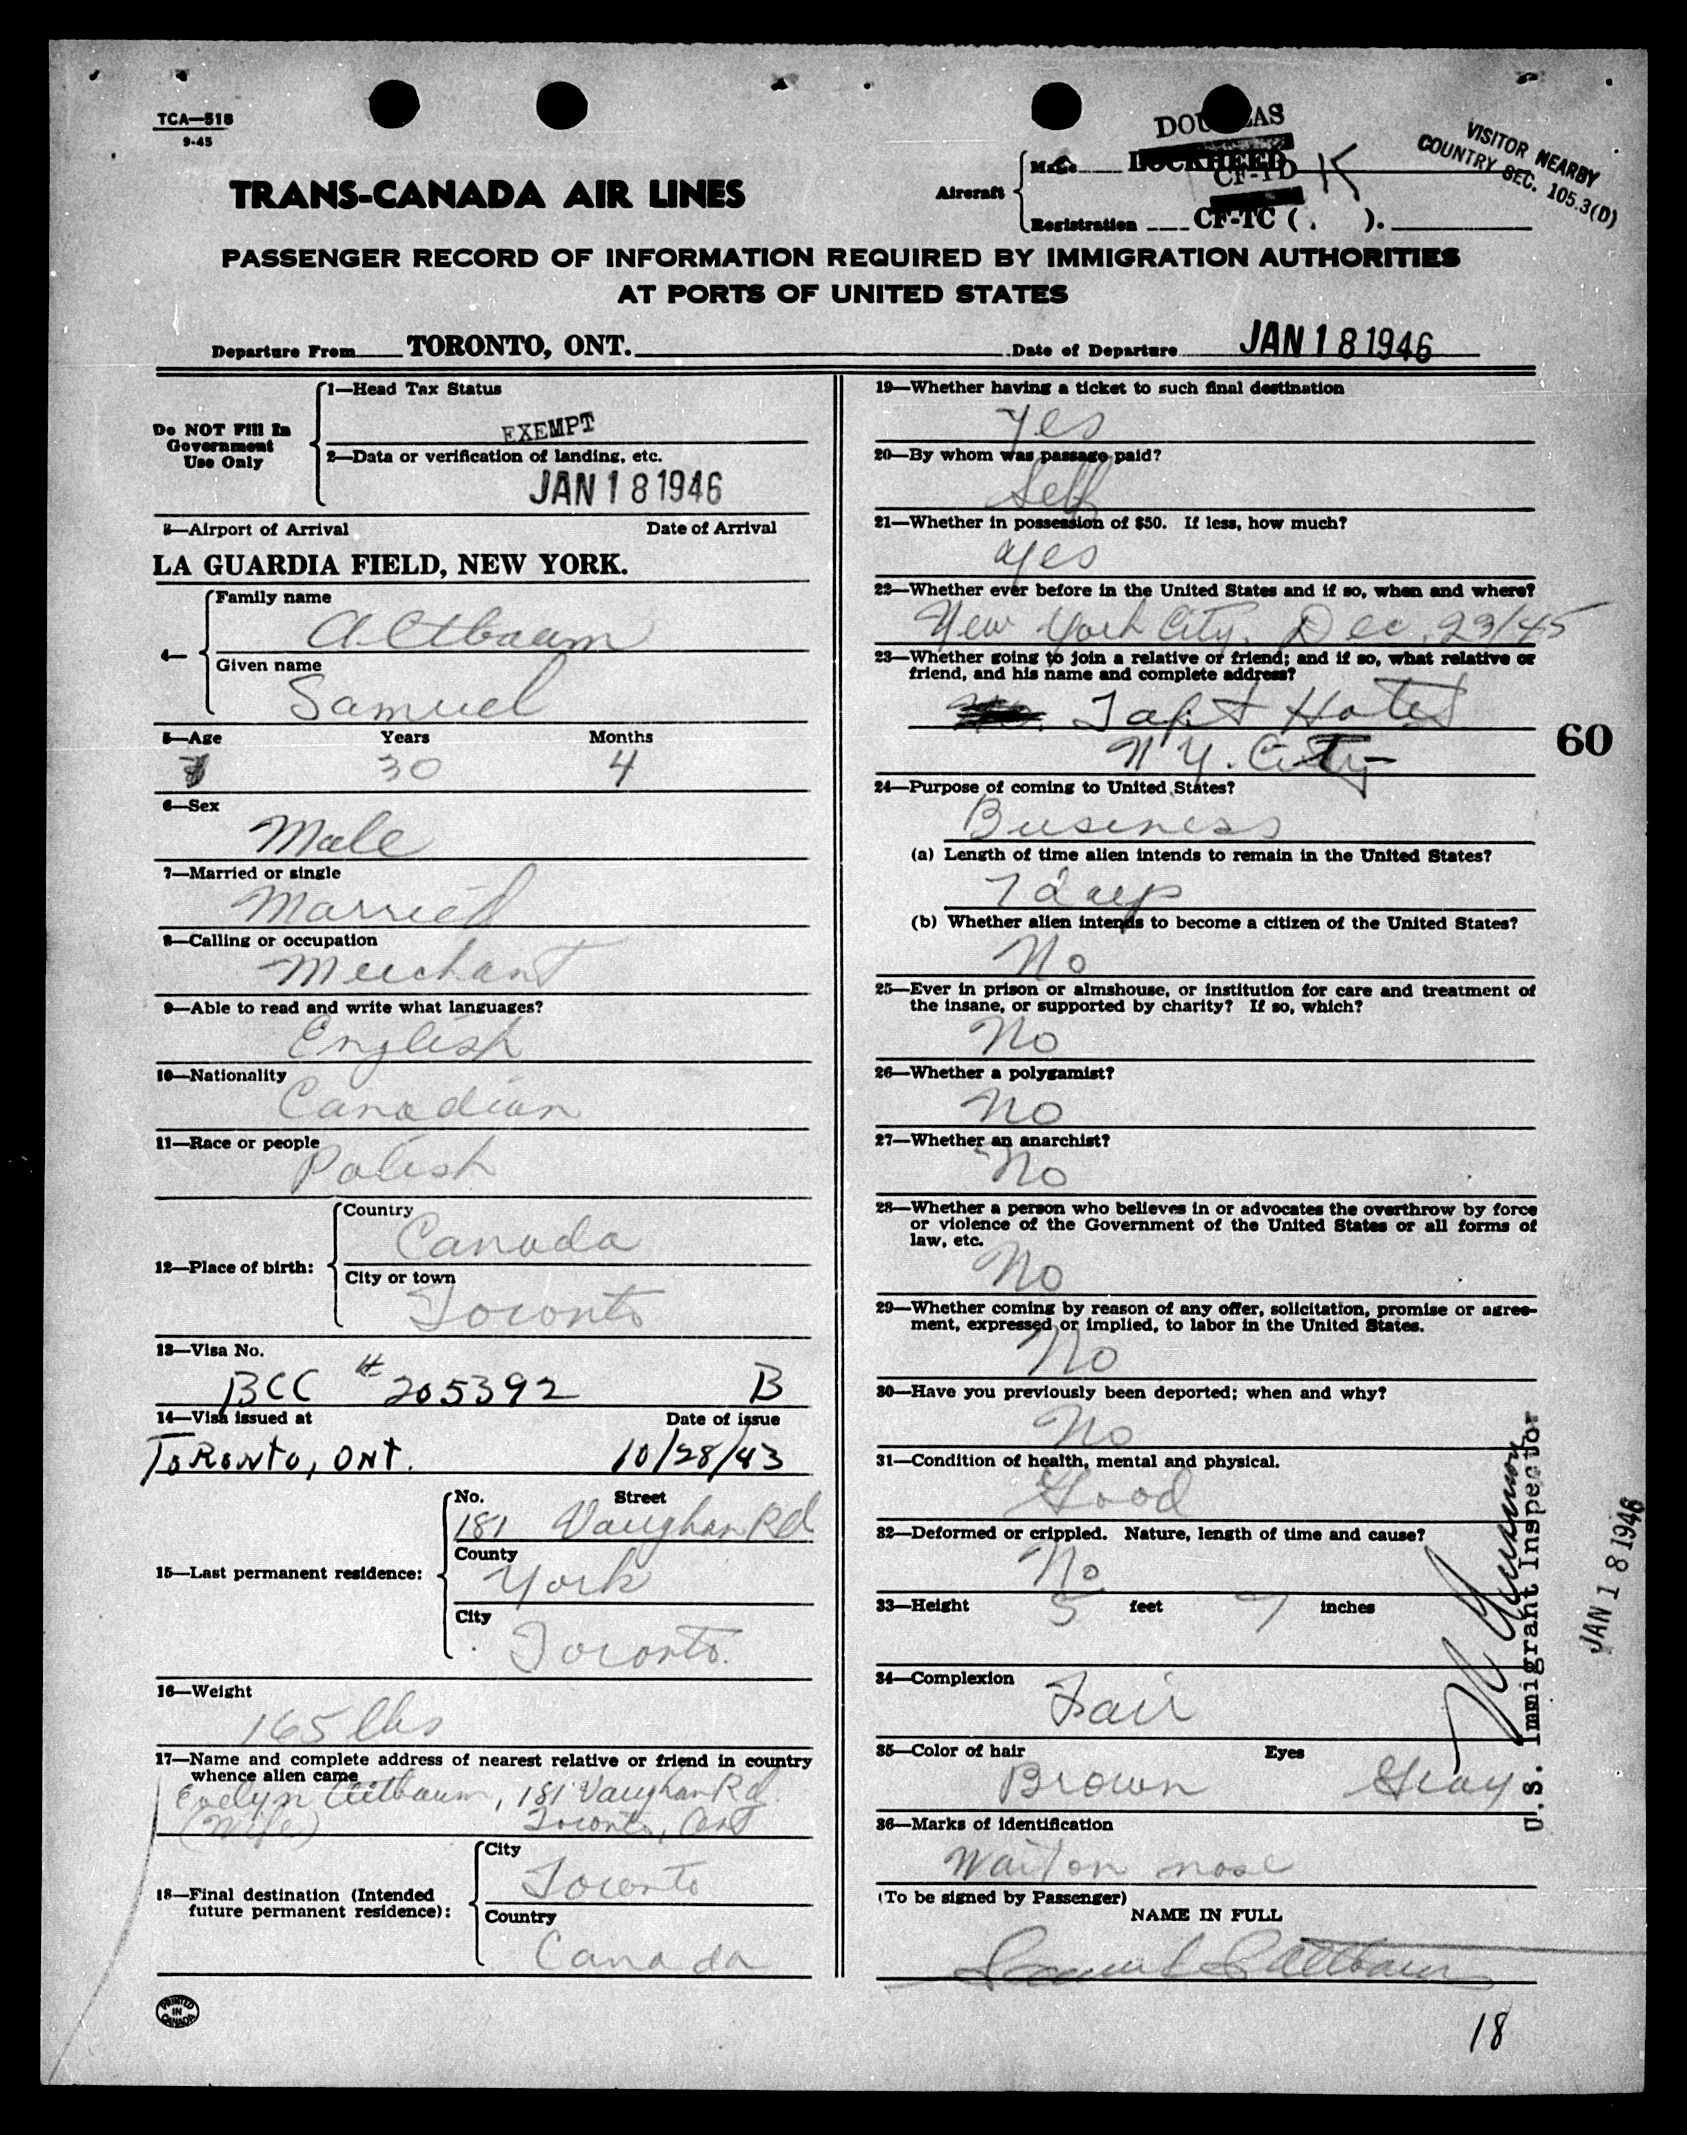 TCA—518
9-45
DOUGLAS
VISITOR NEARBY
COUNTRY SEC. 105.3(D)
Aircraft
Make LOCKHEED
CF-TD K
Registration CF-TC ( . ).
TRANS-CANADA AIR LINES
PASSENGER RECORD OF INFORMATION REQUIRED BY IMMIGRATION AUTHORITIES
AT PORTS OF UNITED STATES
Departure From TORONTO, ONT. Date of Departure JAN 18 1946
Do NOT Fill In
Government
Use Only
1—Head Tax Status
EXEMPT
2—Data or verification of landing, etc.
JAN 18 1946
3—Airport of Arrival Date of Arrival
LA GUARDIA FIELD, NEW YORK.
4—
Family name
Altbaum
Given name
Samuel
5—Age Years Months
30 4
6—Sex
Male
7—Married or single
Married
8—Calling or occupation
Merchant
9—Able to read and write what languages?
English
10—Nationality
Canadian
11—Race or people
Polish
12—Place of birth:
Country
Canada
City or town
Toronto
13—Visa No.
BCC # 205392 B
14—Visa issued at Date of issue
Toronto, Ont. 10/28/43
15—Last permanent residence:
No. Street
181 Vaughan Rd
County
York
City
Toronto.
16—Weight
165 lbs
17—Name and complete address of nearest relative or friend in country
whence alien came
Evelyn Altbaum, 181 Vaughan Rd.
(Wife) Toronto, Ont
18—Final destination (Intended
future permanent residence):
City
Toronto
Country
Canada
PRINTED
IN
CANADA
19—Whether having a ticket to such final destination
Yes
20—By whom was passage paid?
Self
21—Whether in possession of $50. If less, how much?
Yes
22—Whether ever before in the United States and if so, when and where?
New York City. Dec. 23/45
23—Whether going to join a relative or friend; and if so, what relative or
friend, and his name and complete address?
Taft Hotel
N.Y. City
60
24—Purpose of coming to United States?
Business
(a) Length of time alien intends to remain in the United States?
7 days
(b) Whether alien intends to become a citizen of the United States?
No
25—Ever in prison or almshouse, or institution for care and treatment of
the insane, or supported by charity? If so, which?
No
26—Whether a polygamist?
No
27—Whether an anarchist?
No
28—Whether a person who believes in or advocates the overthrow by force
or violence of the Government of the United States or all forms of
law, etc.
No
29—Whether coming by reason of any offer, solicitation, promise or agree-
ment, expressed or implied, to labor in the United States.
No
30—Have you previously been deported; when and why?
No
31—Condition of health, mental and physical.
Good
32—Deformed or crippled. Nature, length of time and cause?
No
33—Height 5 feet 7 inches
34—Complexion
Fair
35—Color of hair Eyes
Brown Gray
36—Marks of identification
Wart on nose
(To be signed by Passenger)
NAME IN FULL
Samuel Altbaum
U.S. Immigrant Inspector
JAN 18 1946
18